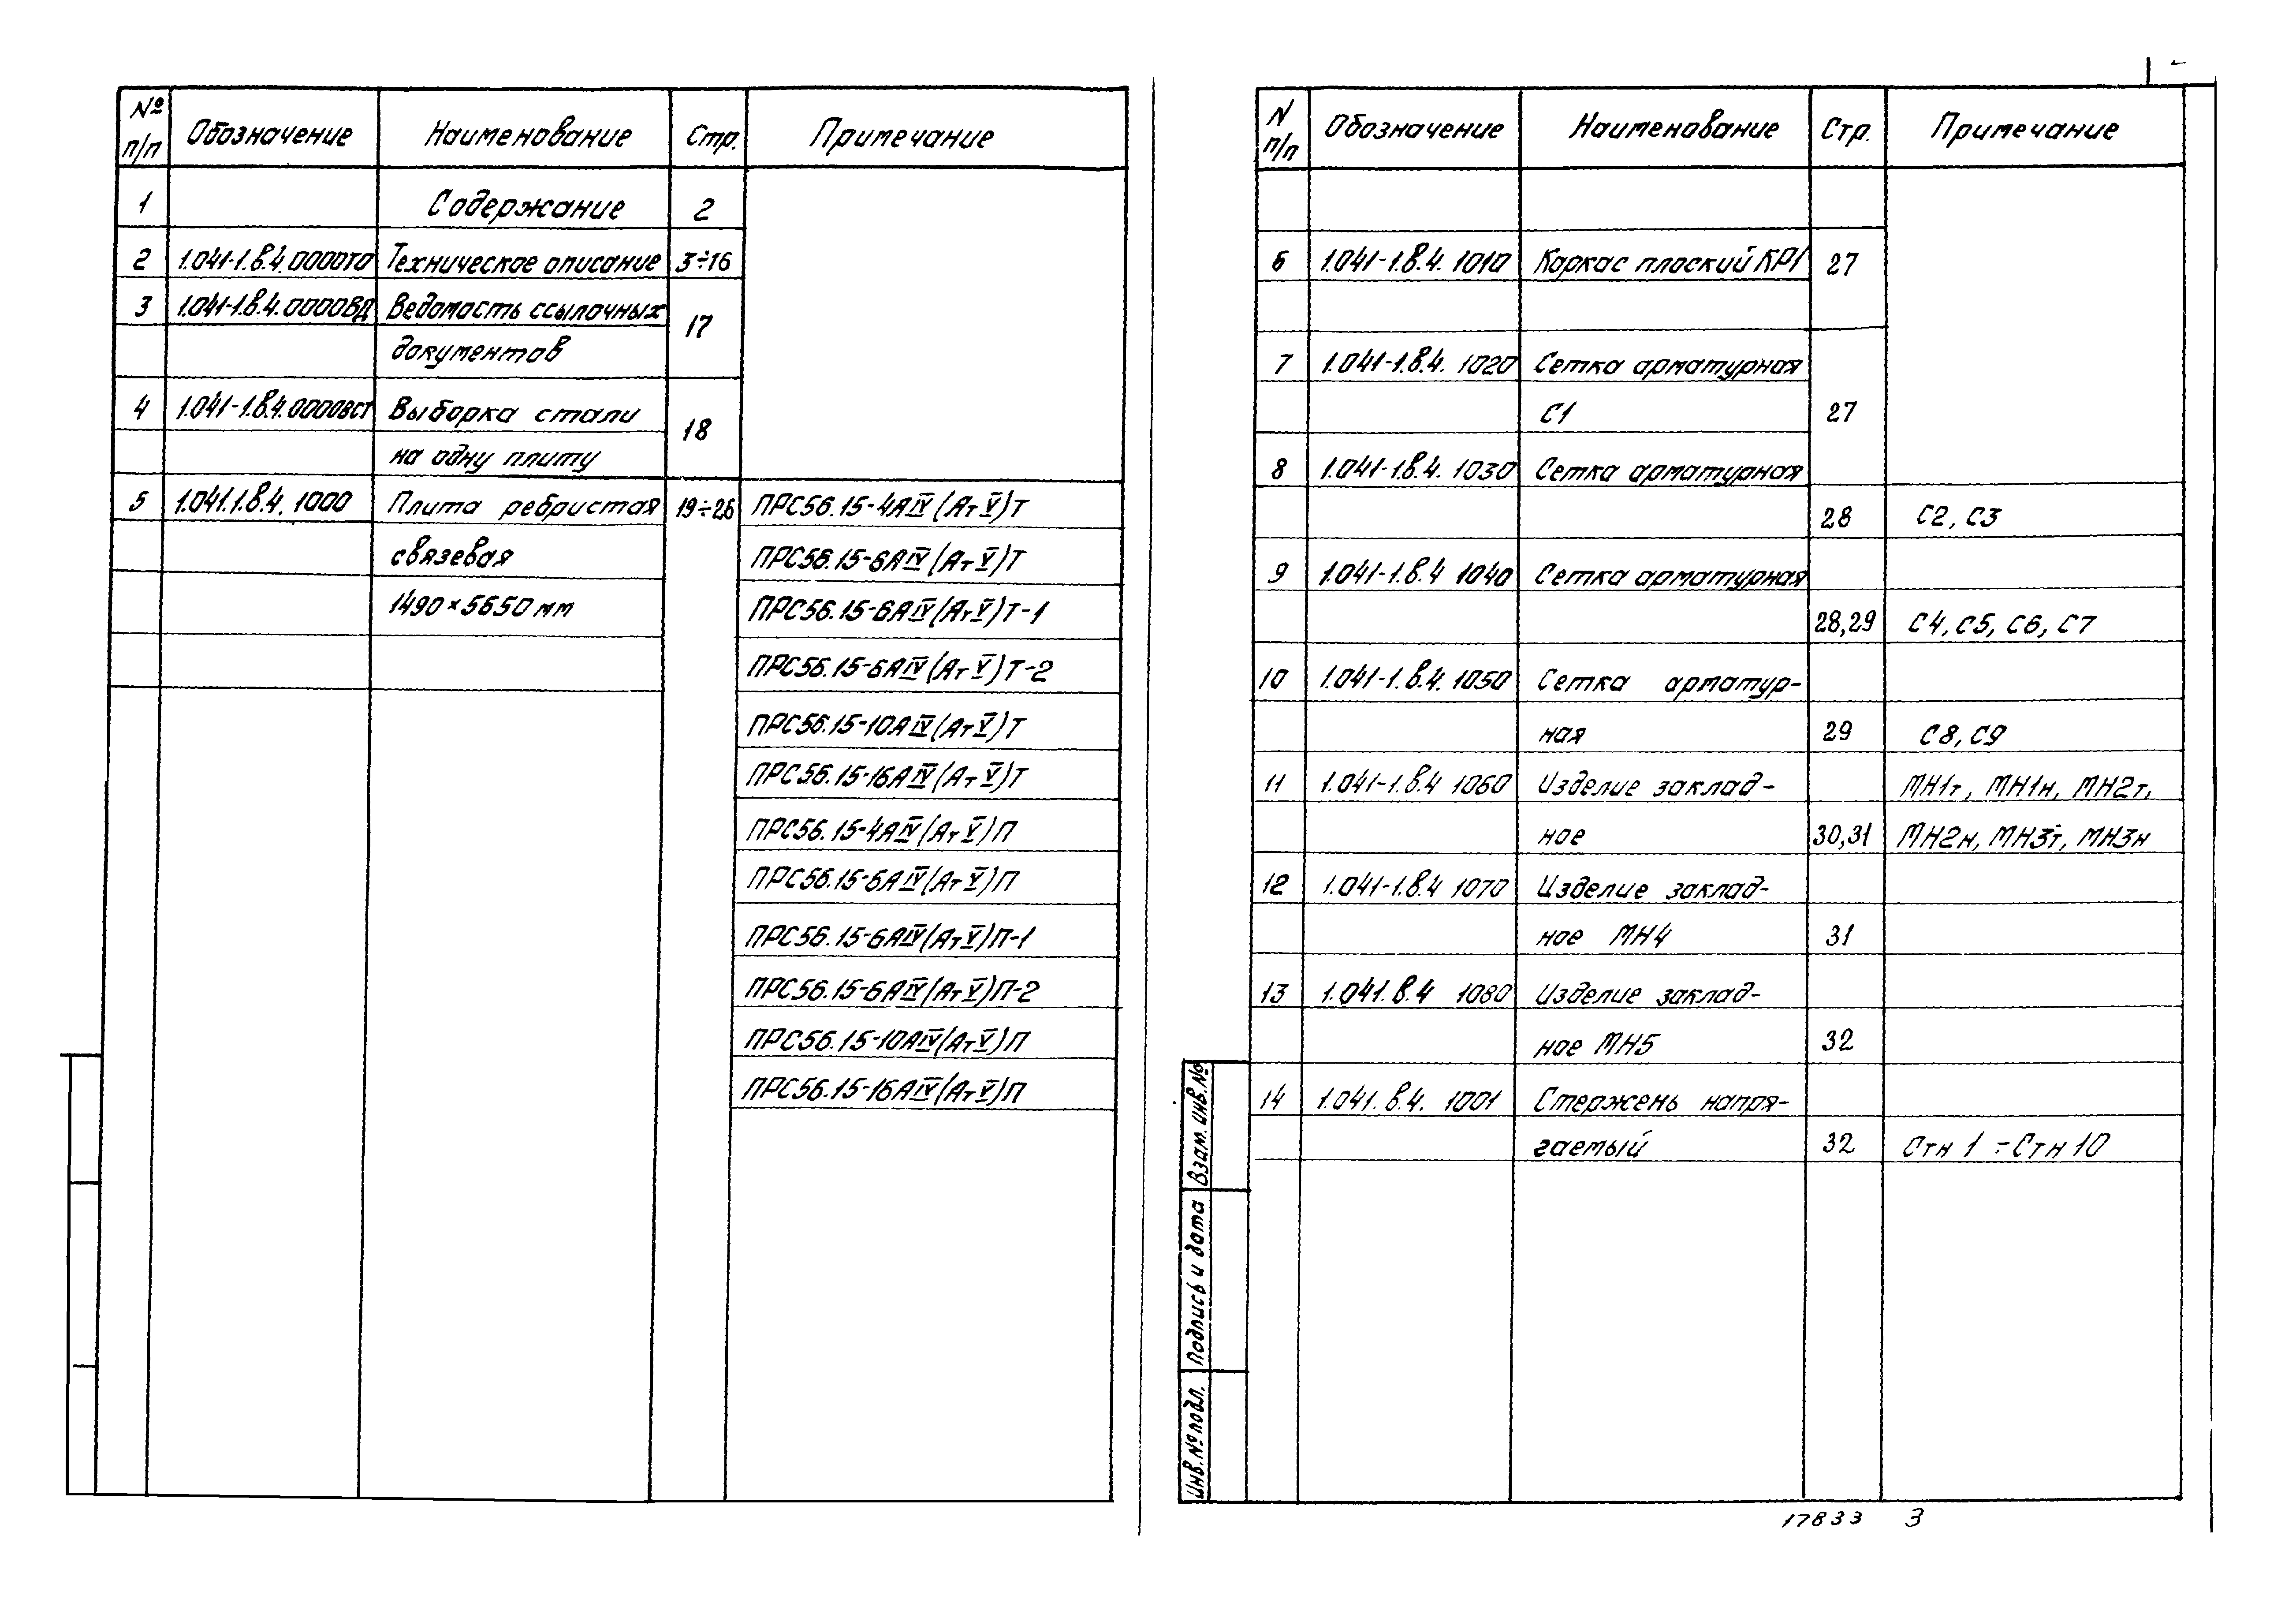 № п/п Обозначение Наименование Стр. Примечание
1 Содержание 2
2 1.041-1.в.4.0000ТО Техническое описание 3÷16
3 1.041-1.в.4.0000ВД Ведомость ссылочных
документов 17
4 1.041-1.в.4.0000ВСТ Выборка стали
на одну плиту 18
5 1.041.1.в.4. 1000 Плита ребристая 19÷26 ПРС56.15-4АIV(АтV)Т
связевая ПРС56.15-6АIV(АтV)Т
1490×5650мм ПРС56.15-6АIV(АтV)Т-1
ПРС56.15-6АIV(АтV)Т-2
ПРС56.15-10АIV(АтV)Т
ПРС56.15-16АIV(АтV)Т
ПРС56.15-4АIV(АтV)П
ПРС56.15-6АIV(АтV)П
ПРС56.15-6АIV(АтV)П-1
ПРС56.15-6АIV(АтV)П-2
ПРС56.15-10АIV(АтV)П
ПРС56.15-16АIV(АтV)П
N п/п Обозначение Наименование Стр. Примечание
6 1.041-1.в.4. 1010 Каркас плоский КР1 27
7 1.041-1.в.4. 1020 Сетка арматурная
С1 27
8 1.041-1.в.4. 1030 Сетка арматурная
28 С2, С3
9 1.041-1.в.4 1040 Сетка арматурная
28,29 С4, С5, С6, С7
10 1.041-1.в.4. 1050 Сетка арматур-
ная 29 С8, С9
11 1.041-1.в.4 1060 Изделие заклад- МН1т, МН1н, МН2т,
ное 30,31 МН2н, МН3т, МН3н
12 1.041-1.в.4 1070 Изделие заклад-
ное МН4 31
13 1.041.в.4 1080 Изделие заклад-
ное МН5 32
14 1.041.в.4. 1001 Стержень напря-
гаемый 32 Стн 1 ÷ Стн 10
Взам. инв.№
Подпись и дата
Инв.№подл.
17833 3